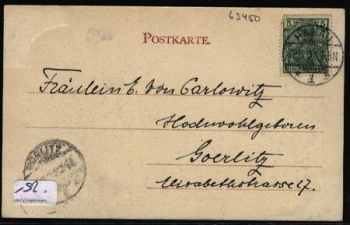 63450
POSTKARTE.
Fräulein E. von Carlowitz
Hochwohlgeboren
Goerlitz
Elisabethstrasse 17.
GÖRLITZ
152.